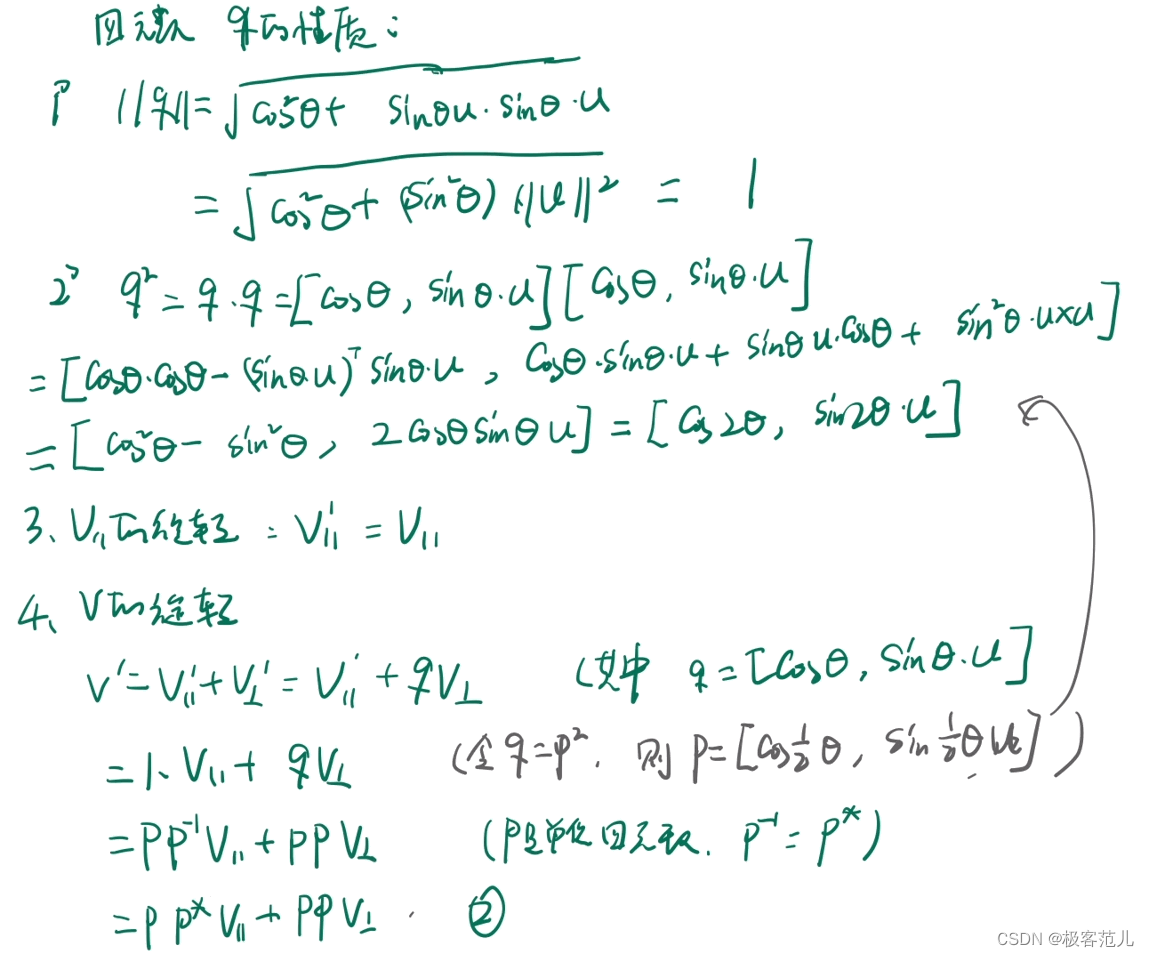 四元数 q的性质:
1° ||q|| = √(cos²θ + sinθu · sinθ·u)
= √(cos²θ + (sin²θ) ||u||²) = 1
2° q² = q·q = [cosθ, sinθ·u][cosθ, sinθ·u]
= [cosθ·cosθ - (sinθ·u)ᵀ sinθ·u, cosθ·sinθ·u + sinθ u·cosθ + sin²θ·u×u]
= [cos²θ - sin²θ, 2cosθsinθ u] = [cos2θ, sin2θ·u]
3、V∥的旋转: V∥' = V∥
4、V的旋转
v' = V∥' + V⊥' = V∥' + qV⊥ (其中 q = [cosθ, sinθ·u])
= 1·V∥ + qV⊥ (令 q = p², 则 p = [cos½θ, sin½θ u])
= pp⁻¹V∥ + ppV⊥ (p是单位四元数. p⁻¹ = p*)
= pp*V∥ + ppV⊥. ②
CSDN @极客范儿